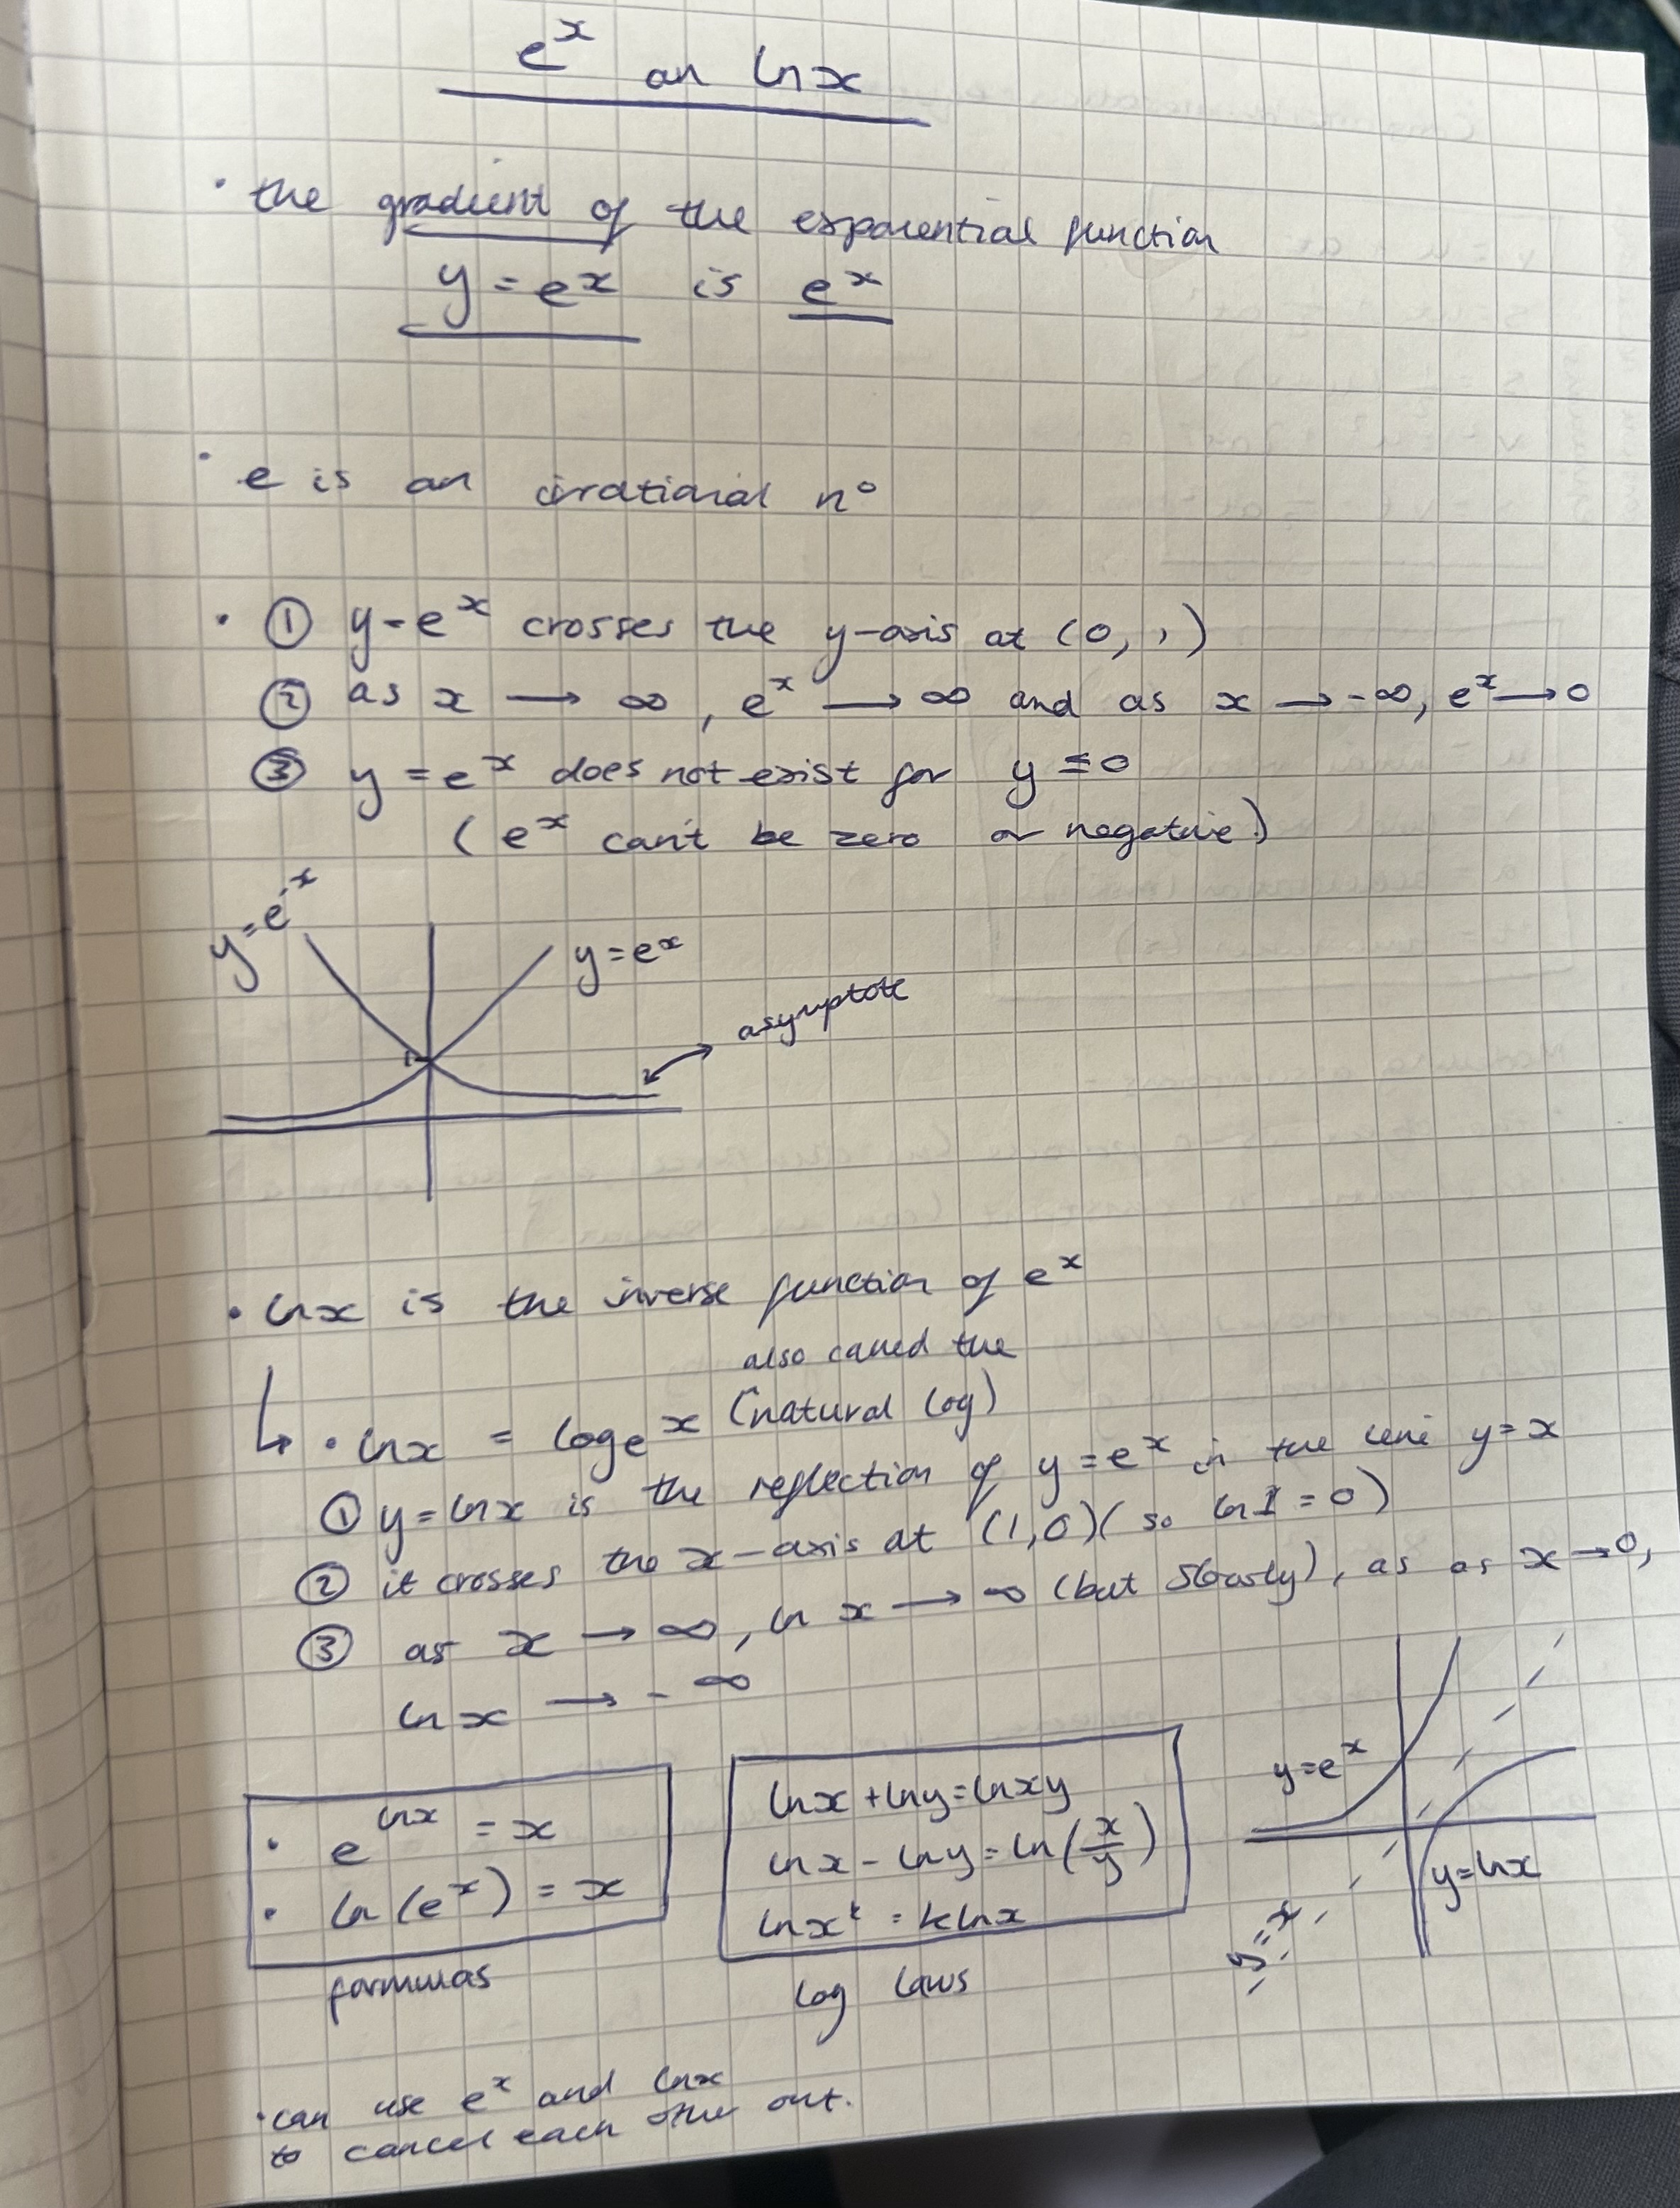 eˣ an lnx
• the gradient of the exponential function
y = eˣ is eˣ
• e is an irrational nº
• ① y = eˣ crosses the y-axis at (0, , )
② as x → ∞, eˣ → ∞ and as x → -∞, eˣ → 0
③ y = eˣ does not exist for y ≤ 0
( eˣ can't be zero or negative)
y = e⁻ˣ
y = eˣ
asymptote
1
• lnx is the inverse function of eˣ
also called the
↳ • lnx = logₑx (natural log)
① y = lnx is the reflection of y = eˣ in the line y = x
② it crosses the x-axis at (1,0) ( so ln1 = 0 )
③ as x → ∞, ln x → ∞ (but slowly), as as x → 0,
lnx → - ∞
• e^(lnx) = x
• ln (eˣ) = x
formulas
lnx + lny = lnxy
lnx - lny = ln(x/y)
lnxᵏ = klnx
log laws
y = eˣ
y = lnx
y = x
• can use eˣ and lnx
to cancel each other out.